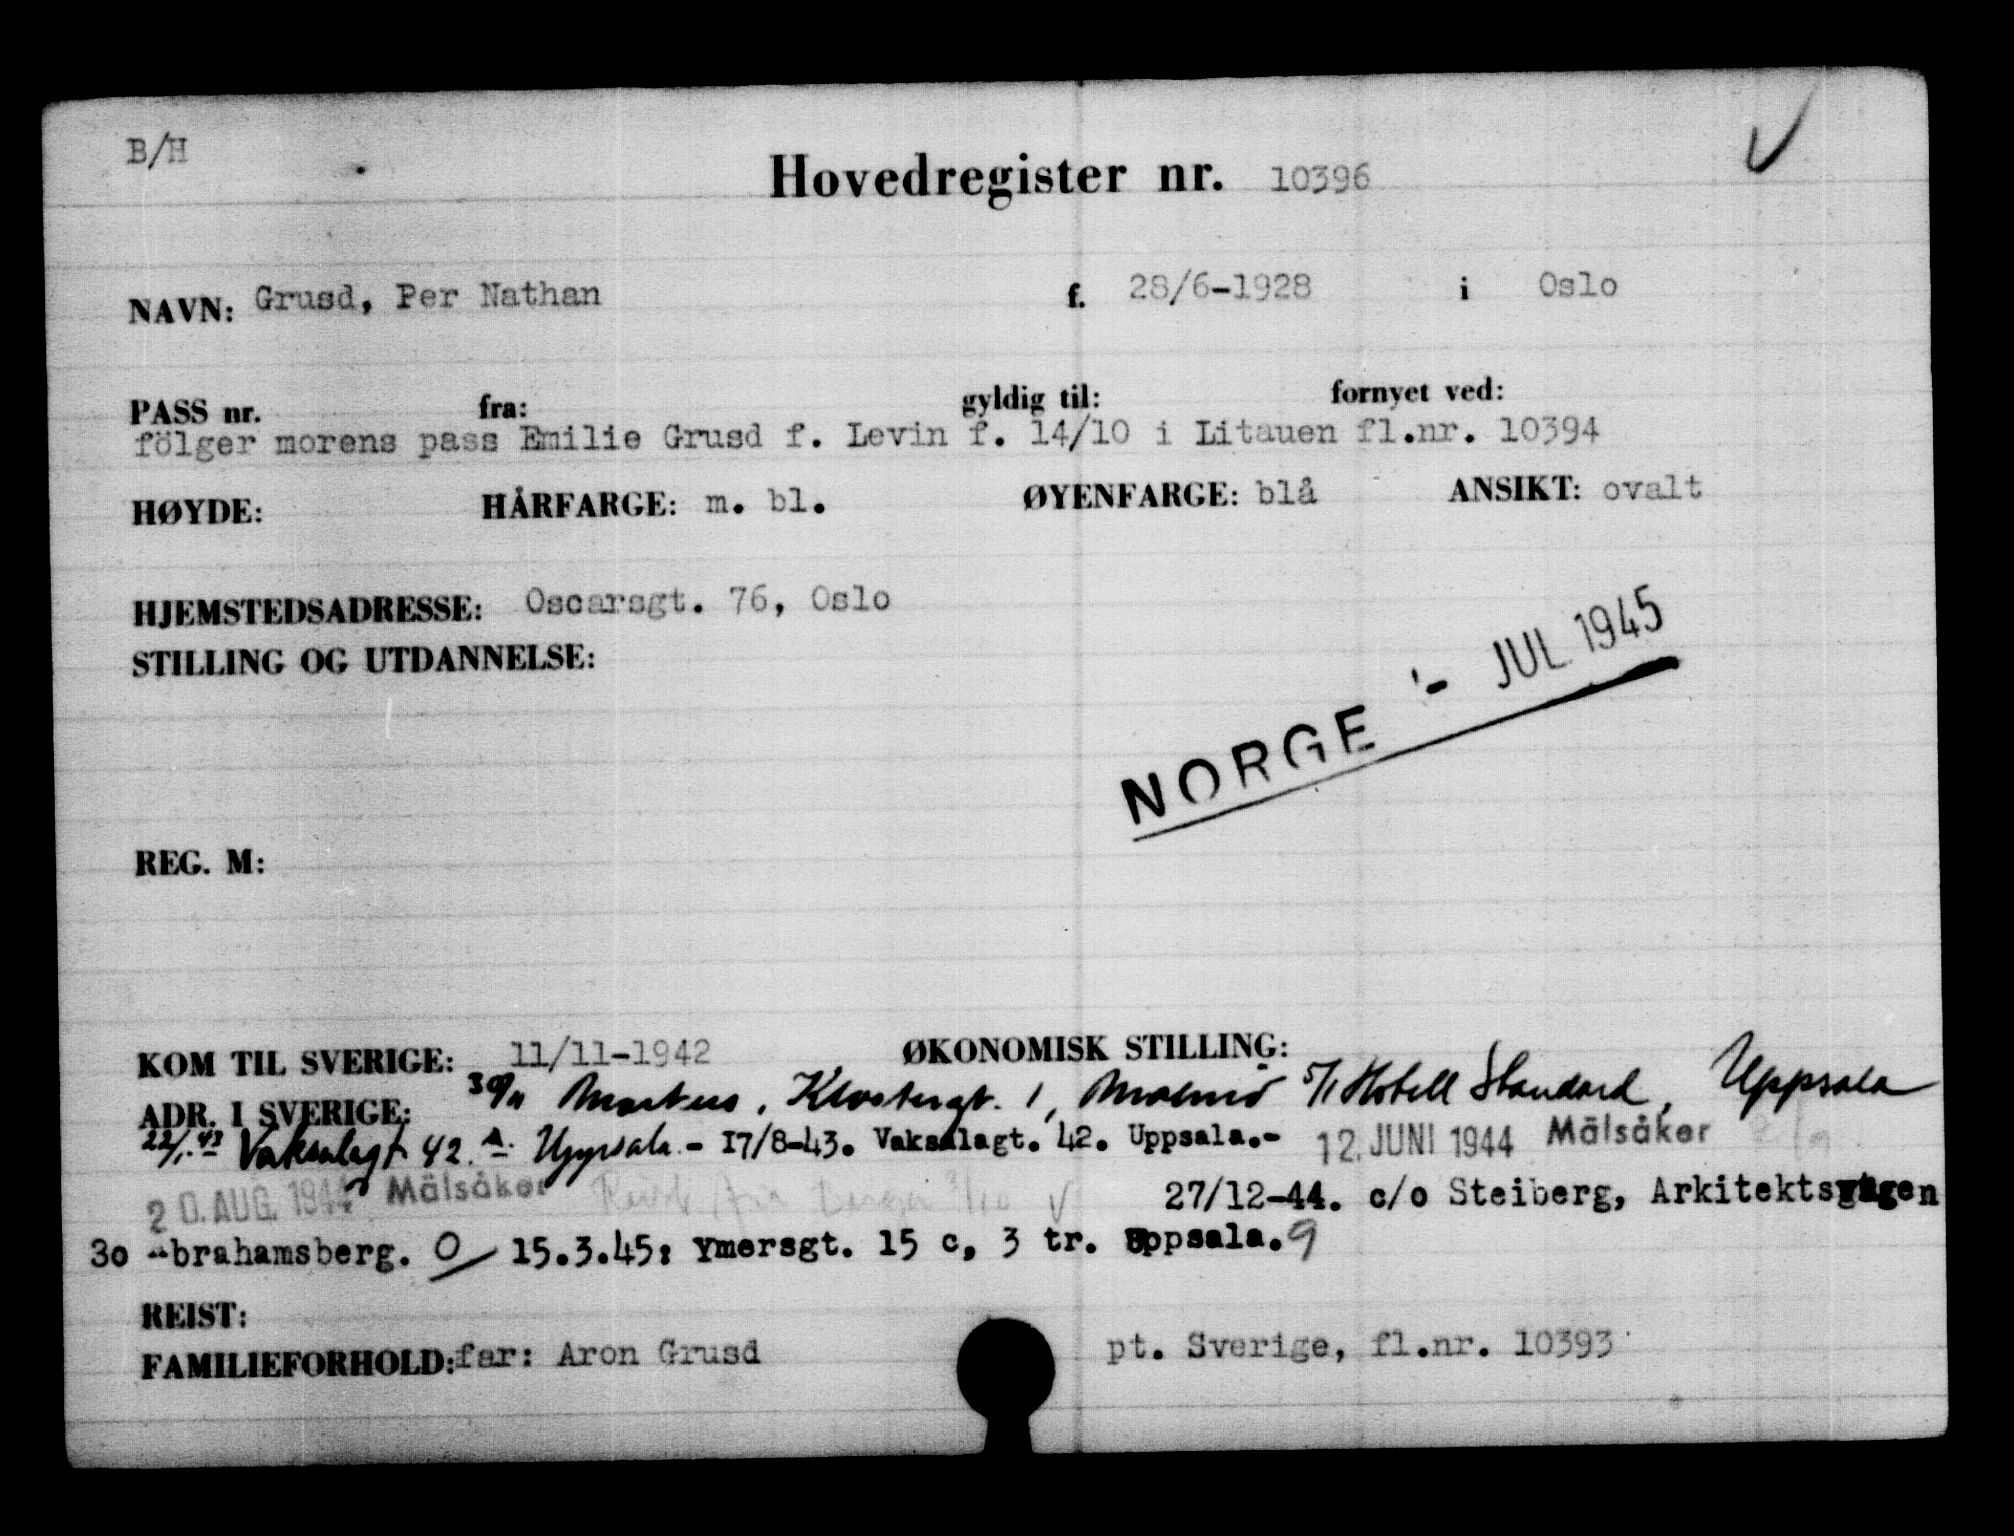 B/H
Hovedregister nr. 10396
NAVN: Grusd, Per Nathan f. 28/6-1928 i Oslo
PASS nr. fra: gyldig til: fornyet ved:
fölger morens pass Emilie Grusd f. Levin f. 14/10 i Litauen fl.nr. 10394
HØYDE: HÅRFARGE: m. bl. ØYENFARGE: blå ANSIKT: ovalt
HJEMSTEDSADRESSE: Oscarsgt. 76, Oslo
STILLING OG UTDANNELSE:
NORGE - JUL 1945
REG. M:
KOM TIL SVERIGE: 11/11-1942 ØKONOMISK STILLING:
ADR. I SVERIGE: 30/11 Markus, Klostergt. 1, Malmö 5/1 Hotell Standard, Uppsala
22/1.43 Vaksalagt 42.A. Uppsala.- 17/8-43. Vaksalagt. 42. Uppsala.- 12. JUNI 1944 Mälsåker
20. AUG. 1944 Mälsåker 27/12-44. c/o Steiberg, Arkitektsvägen
30 Abrahamsberg. O/ 15.3.45: Ymersgt. 15 c, 3 tr. Uppsala. 9
REIST:
FAMILIEFORHOLD: far: Aron Grusd pt. Sverige, fl.nr. 10393